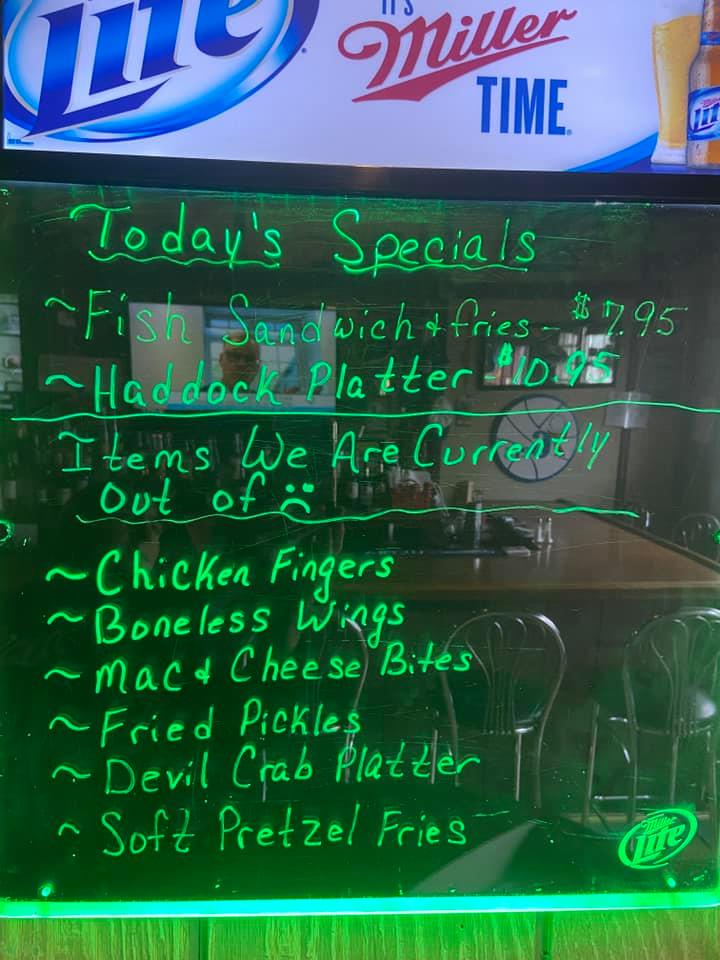 Lite
IT'S
Miller
TIME
Today's Specials
~Fish Sandwich & fries - $7.95
~Haddock Platter $10.95
Items We Are Currently
Out of :(
~Chicken Fingers
~Boneless Wings
~Mac & Cheese Bites
~Fried Pickles
~Devil Crab Platter
~Soft Pretzel Fries
Miller
Lite